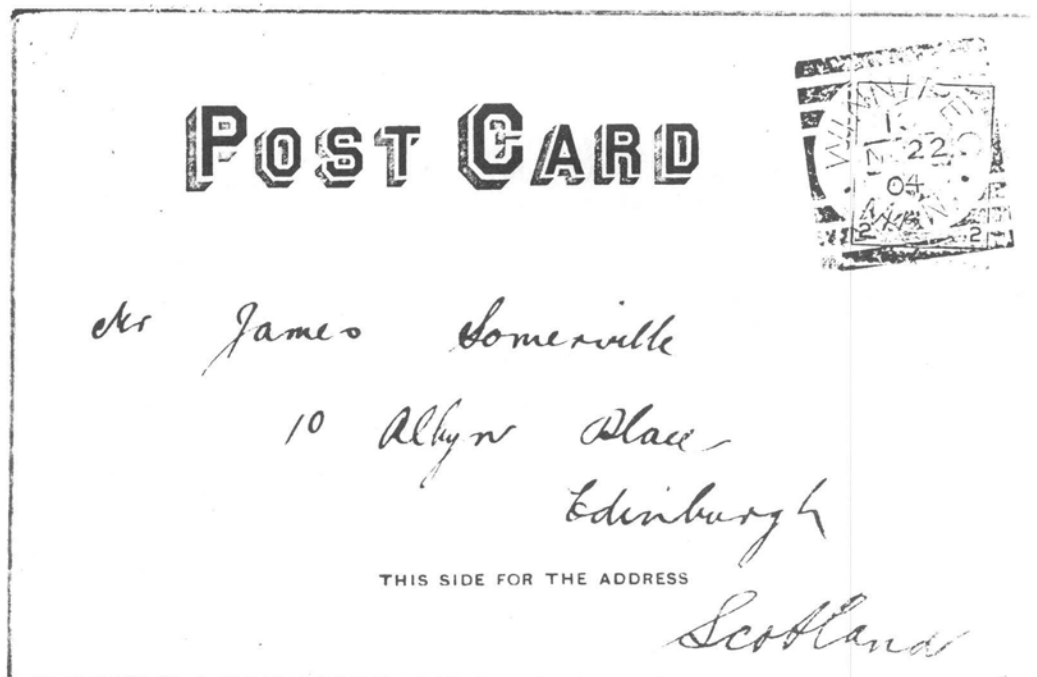 POST CARD
WINNIPEG
22
04
2 2
Mr James Somerville
10 Albyn Place
Edinburgh
THIS SIDE FOR THE ADDRESS
Scotland